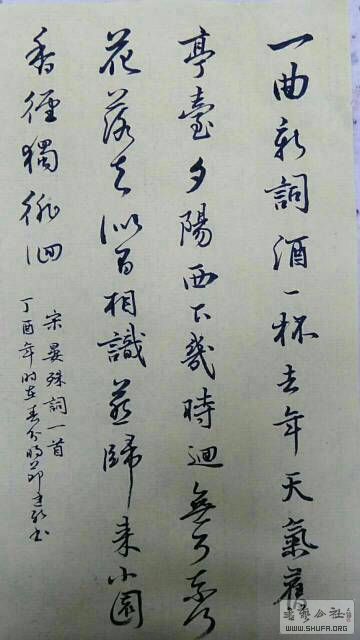 一曲新詞酒一杯去年天氣舊
亭臺夕陽西下幾時迴無可奈何
花落去似曾相識燕歸来小園
香徑獨徘徊
宋晏殊詞一首
丁酉年時在春分時節建书
书艺公社
WWW.SHUFA.ORG